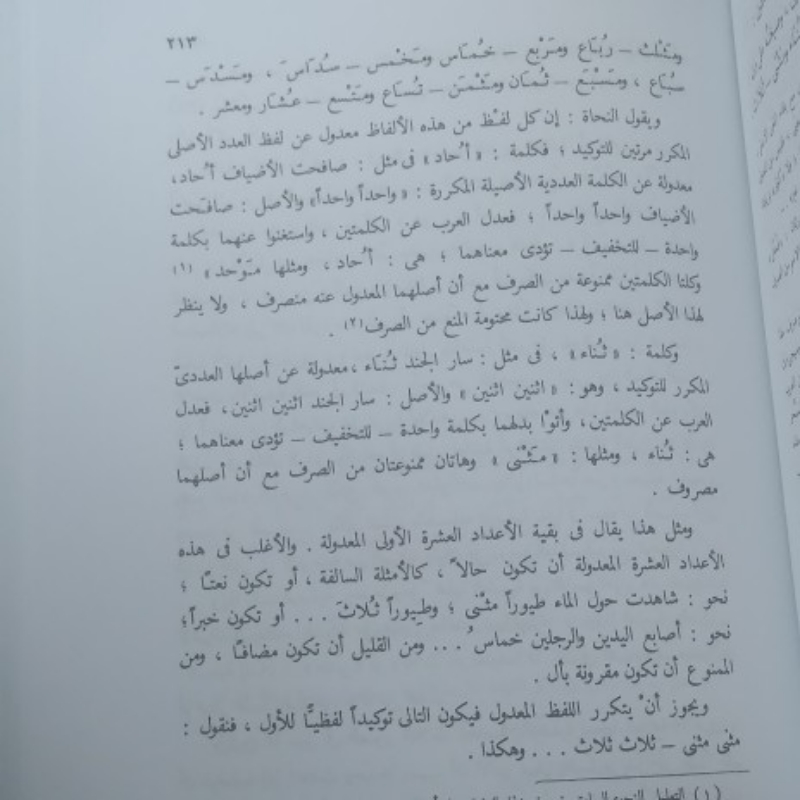 ٢١٣
ومَثْلث – رُبَاع ومَرْبع – خُمَاس ومَخْمس – سُدَاسَ ، ومَسْدَس –
سُبَاع ، ومَسْبَعَ – ثُمَان ومَثْمَن – تُسَاع ومَتْسع – عُشَار ومعشر .
ويقول النحاة : إن كل لفظ من هذه الألفاظ معدول عن لفظ العدد الأصلى
المكرر مرتين للتوكيد ؛ فكلمة : « أُحاد » فى مثل : صافحت الأضياف أُحاد،
معدولة عن الكلمة العددية الأصيلة المكررة : « واحداً واحداً» والأصل : صافحت
الأضياف واحداً واحداً ؛ فعدل العرب عن الكلمتين ، واستغنوا عنهما بكلمة
واحدة – للتخفيف – تؤدى معناهما ؛ هى : أُحاد ، ومثلها مَوْحد » (١)
وكلتا الكلمتين ممنوعة من الصرف مع أن أصلهما المعدول عنه منصرف ، ولا ينظر
لهذا الأصل هنا ؛ ولهذا كانت محتومة المنع من الصرف(٢) .
وكلمة : « ثُناء» ، فى مثل : سار الجند ثُنَاء ،معدولة عن أصلها العددىّ
المكرر للتوكيد ، وهو : « اثنين اثنين » والأصل : سار الجند اثنين اثنين ، فعدل
العرب عن الكلمتين، وأتوْا بدلهما بكلمة واحدة – للتخفيف – تؤدى معناهما ؛
هى : ثُناء ، ومثلها : « مَثْنى » وهاتان ممنوعتان من الصرف مع أن أصلهما
مصروف .
ومثل هذا يقال فى بقية الأعداد العشرة الأولى المعدولة . والأغلب فى هذه
الأعداد العشرة المعدولة أن تكون حالاً ، كالأمثلة السالفة ، أو تكون نعتًا ؛
نحو : شاهدت حول الماء طيوراً مثْنى ؛ وطيوراً ثُلاثَ . . . أو تكون خبراً؛
نحو : أصابع اليدين والرجلين خماسُ . . . ومن القليل أن تكون مضافًا ، ومن
الممنوع أن تكون مقرونة بأل .
ويجوز أنْ يتكرر اللفظ المعدول فيكون التالى توكيداً لفظيًّا للأول ، فنقول :
مثنى مثنى – ثلاث ثلاث . . . وهكذا .